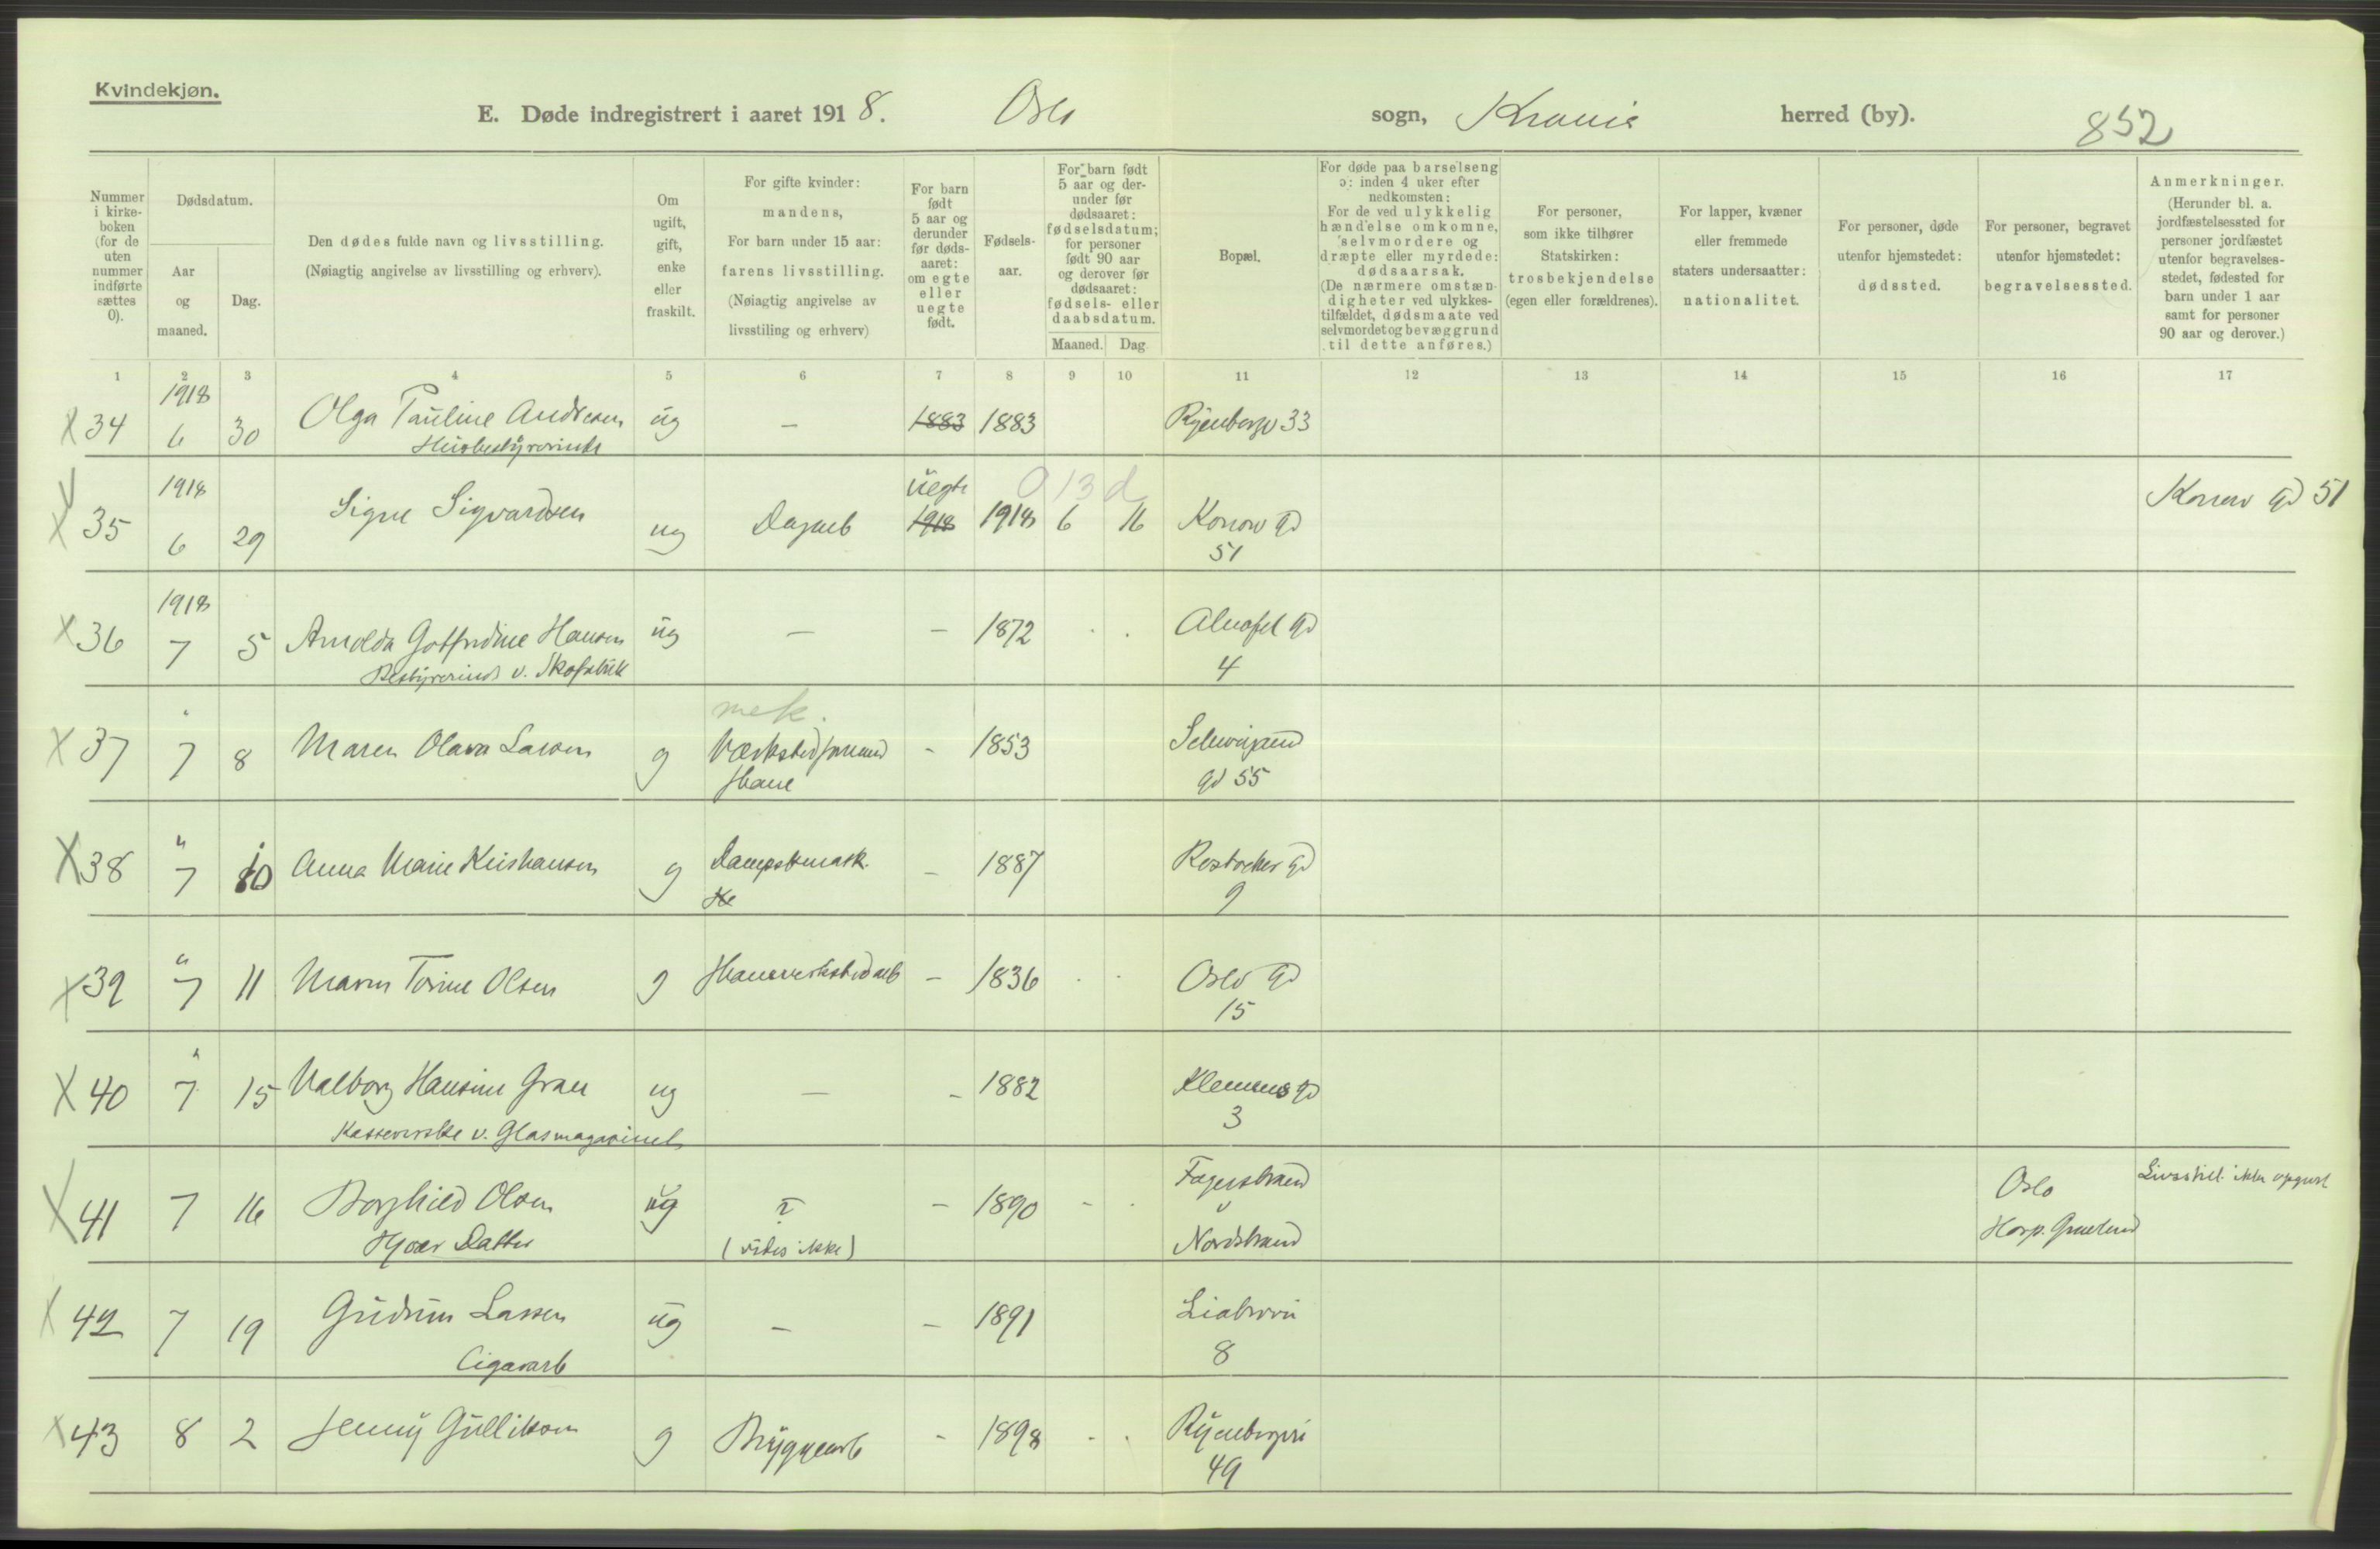 Kvindekjøn.
E. Døde indregistrert i aaret 1918. Oslo sogn, Krania herred (by). 852
Nummer i kirke-boken (for de uten nummer indførte sættes 0).
Dødsdatum.
Aar og maaned.
Dag.
Den dødes fulde navn og livsstilling. (Nøiagtig angivelse av livsstilling og erhverv).
Om ugift, gift, enke eller fraskilt.
For gifte kvinder: mandens, For barn under 15 aar: farens livsstilling. (Nøiagtig angivelse av livsstiling og erhverv)
For barn født 5 aar og derunder før døds-aaret: om egte eller uegte født.
Fødsels-aar.
For barn født 5 aar og der-under før dødsaaret: fødselsdatum; for personer født 90 aar og derover før dødsaaret: fødsels- eller daabsdatum.
Maaned. Dag
Bopæl.
For døde paa barselseng ɔ: inden 4 uker efter nedkomsten: For de ved ulykkelig hændelse omkomne, selvmordere og dræpte eller myrdede: dødsaarsak. (De nærmere omstæn-digheter ved ulykkes-tilfældet, dødsmaate ved selvmordet og bevæggrund til dette anføres.)
For personer, som ikke tilhører Statskirken: trosbekjendelse (egen eller forældrenes).
For lapper, kvæner eller fremmede staters undersaatter: nationalitet.
For personer, døde utenfor hjemstedet: dødssted.
For personer, begravet utenfor hjemstedet: begravelsessted.
Anmerkninger. (Herunder bl. a. jordfæstelsessted for personer jordfæstet utenfor begravelses-stedet, fødested for barn under 1 aar samt for personer 90 aar og derover.)
1 2 3 4 5 6 7 8 9 10 11 12 13 14 15 16 17
1918
X 34 6 30 Olga Pauline Andresen ug — 1883 1883 Ryenbergv 33
Husbestyrerinde
1918 uegte 0 13 d
X 35 6 29 Signe Sigvardsen ug Dagarb 1918 1918 6 16 Konow gd 51 Konow gd 51
1918
X 36 7 5 Arnolda Gotfridine Hansen ug — - 1872 Alnafet gd 4
Bestyrerinde v. Skofabrik
mek.
X 37 " 7 8 Maren Olava Larsen g Værkstedformand - 1853 Schweigaard gd 55
X 38 " 7 10 Anna Marie Kristiansen g Dampskmask. - 1887 Rostocker gd 9
X 39 " 7 11 Maren Torine Olsen g - 1836 Oslo gd 15
X 40 " 7 15 Valborg Hansine Gran ug — - 1882 Klemens gd 3
Kassererske v. Glasmagasinet
X 41 7 16 Borghild Olsen ug ? - 1890 - Fagerstrand v Nordstrand Oslo Livsstill. ikke opgivet
Datter (vides ikke)
X 42 7 19 Gudrun Lassen ug — - 1891 Liabrovn 8
Cigararb
X 43 8 2 Jenny Gulliksen g Bryggearb - 1898 Ryenbergvei 49